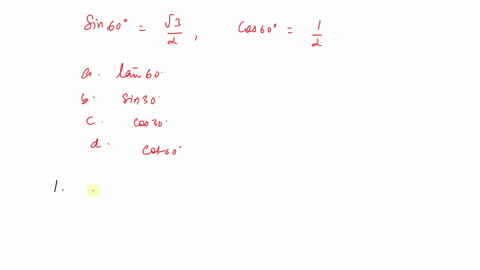 Sin 60° = √3/2 , Cos 60° = 1/2
a. tan 60°
b. Sin 30°
c. Cos 30°
d. Cot 60°
1.